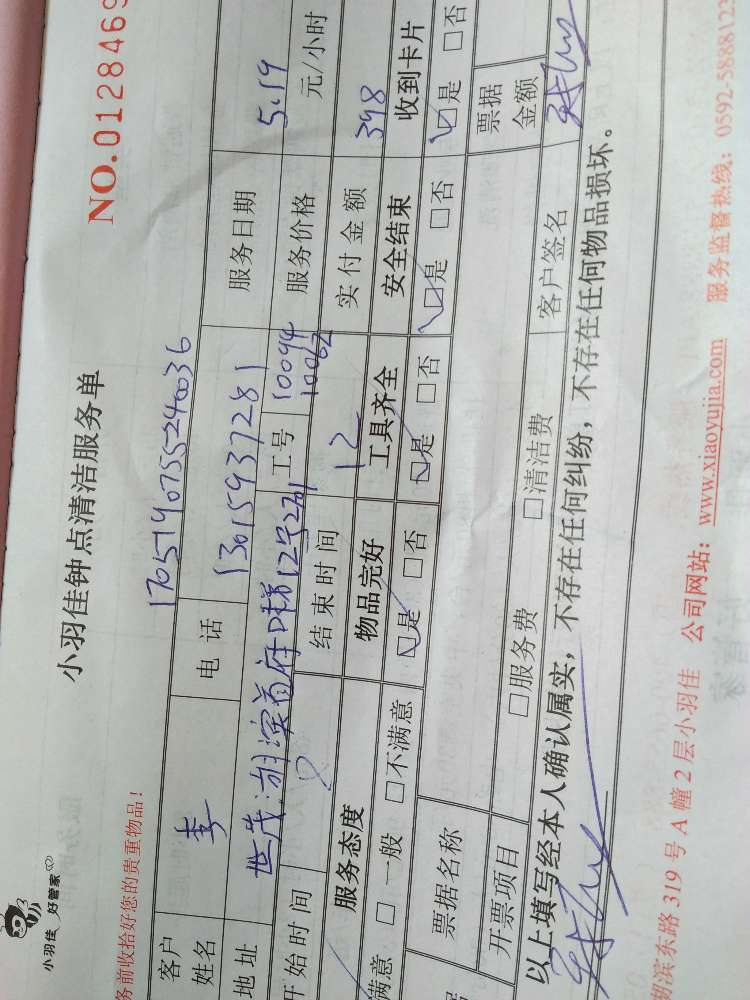 小羽佳 好管家
小羽佳钟点清洁服务单
NO.0128469
务前收拾好您的贵重物品！
1705190755240036
客户姓名 李 电话 13015937281 服务日期 5.19
地址 世茂湖滨首府D梯12号2701 工号 10094 10062 服务价格 元/小时
开始时间 8 结束时间 12 实付金额 398
服务态度 物品完好 工具齐全 安全结束 收到卡片
满意 □一般 □不满意 □是 □否 □是 □否 □是 □否 □是 □否
票据名称 票据金额
开票项目 □服务费 □清洁费 客户签名
以上填写经本人确认属实，不存在任何纠纷，不存在任何物品损坏。
湖滨东路319号A幢2层小羽佳 公司网站：www.xiaoyujia.com 服务监督热线：0592-5888123